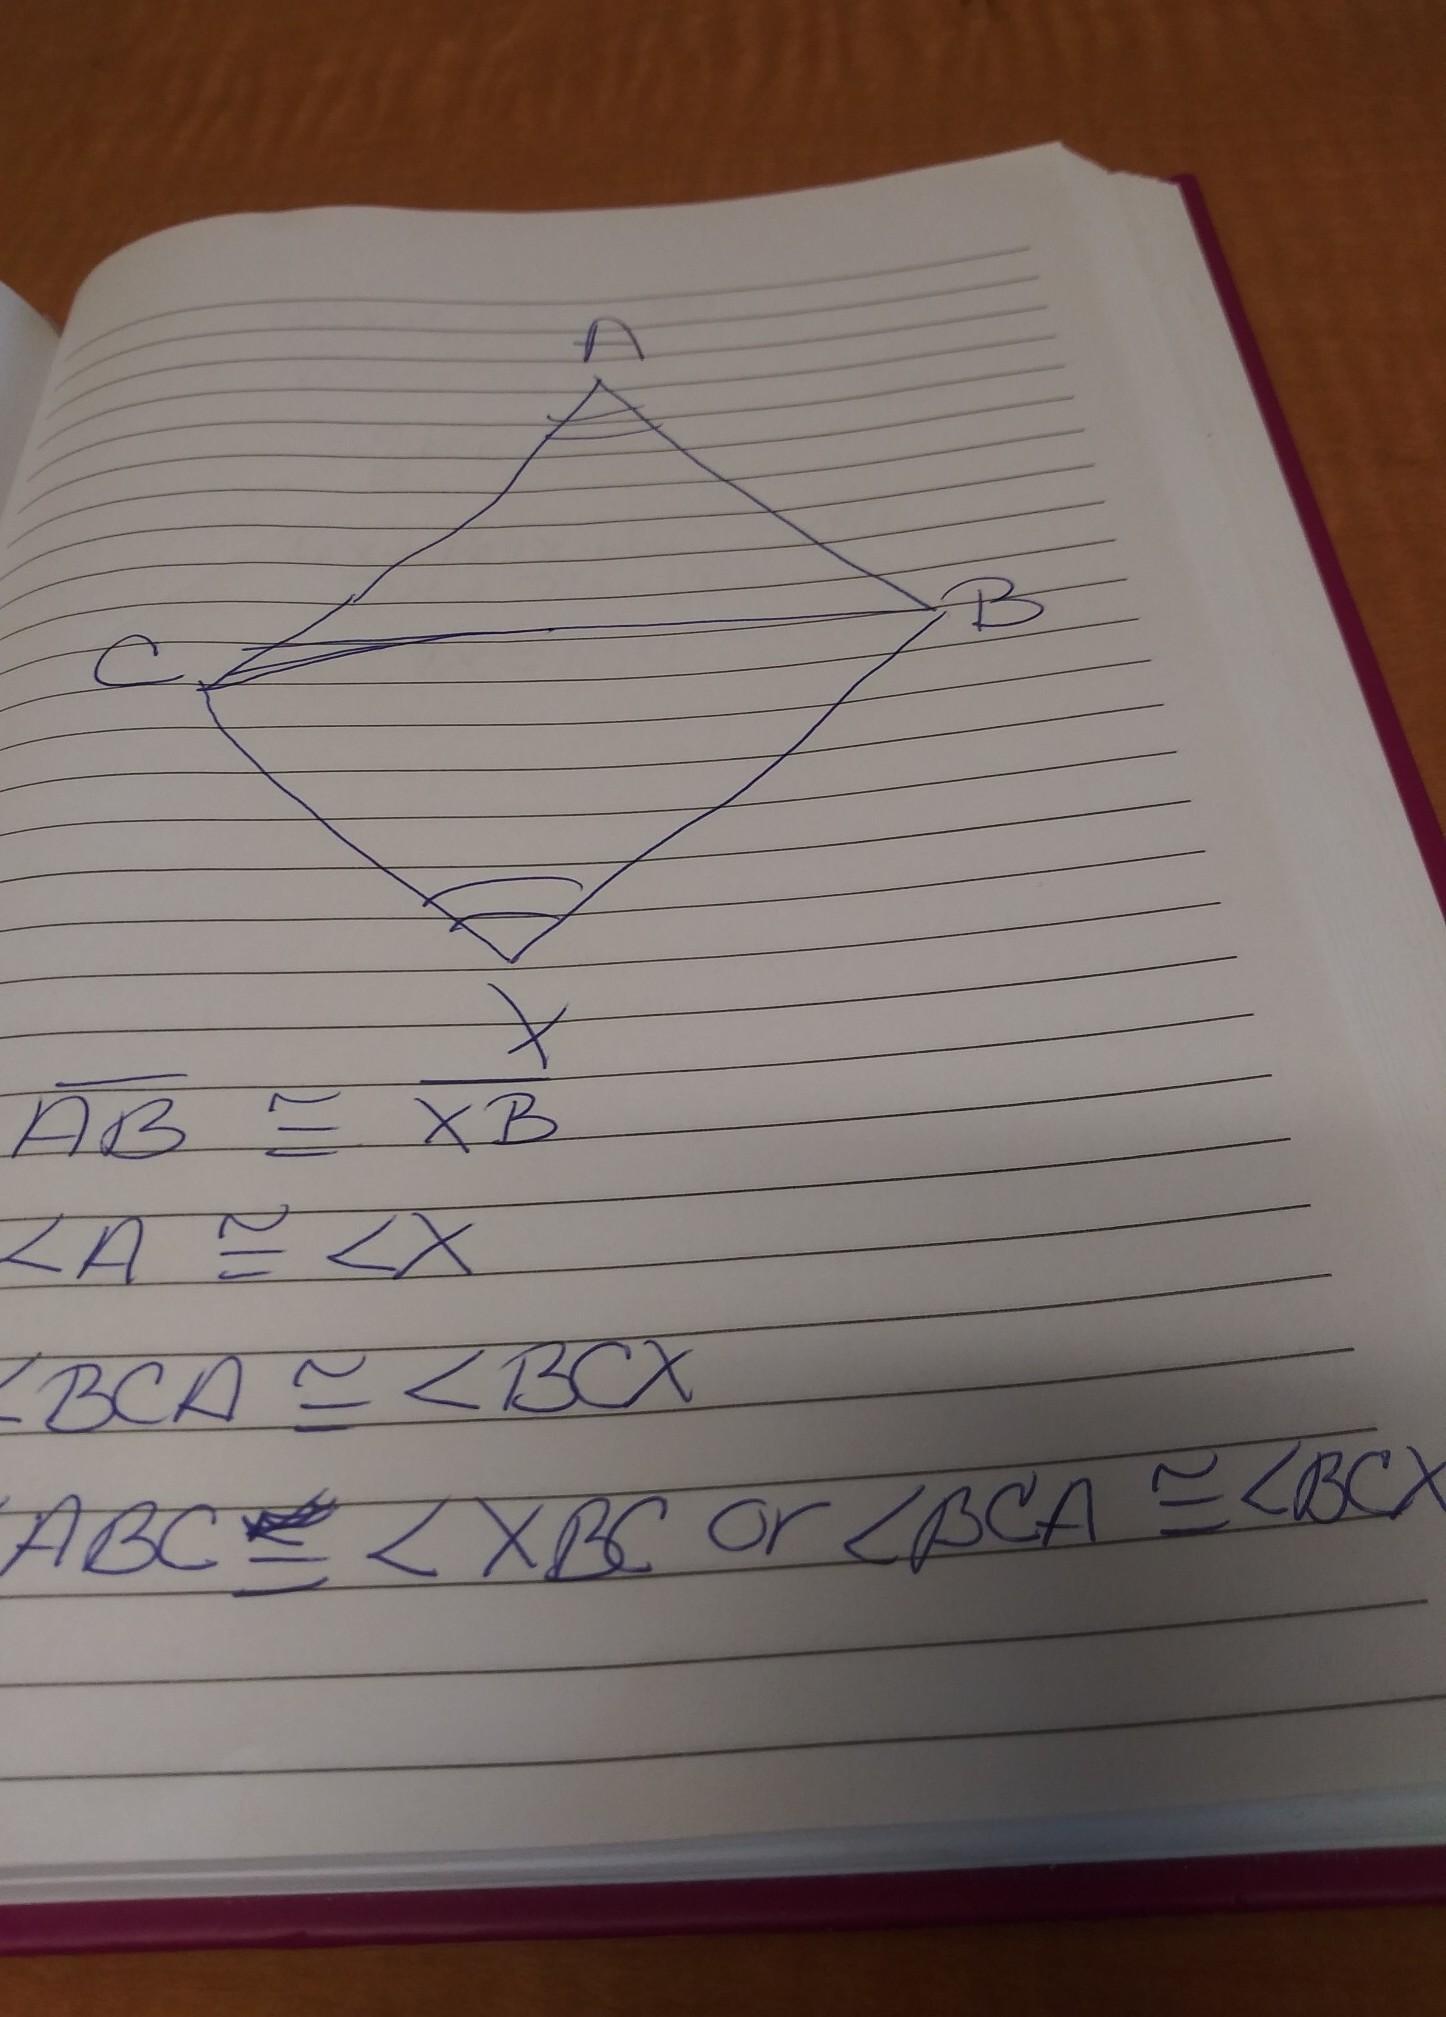 A
B
C
X
AB ≅ XB
<A ≅ <X
<BCA ≅ <BCX
<ABC ≅ <XBC or <BCA ≅ <BCX